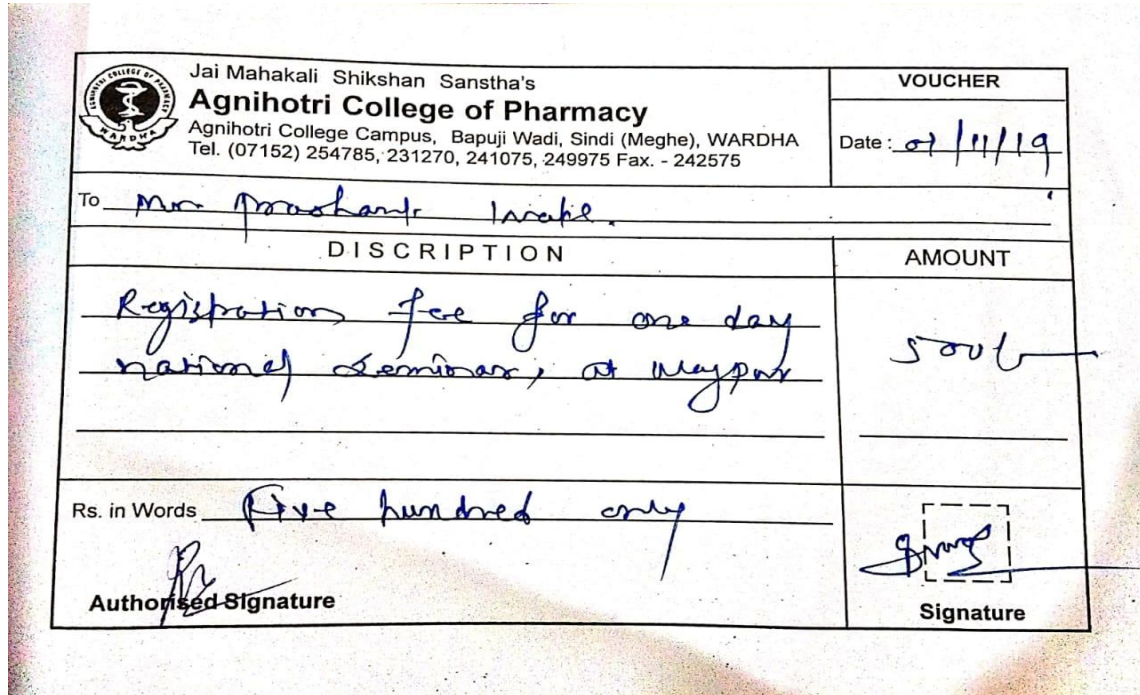 AGNIHOTRI COLLEGE OF PHARMACY
WARDHA
Jai Mahakali Shikshan Sanstha's
Agnihotri College of Pharmacy
Agnihotri College Campus, Bapuji Wadi, Sindi (Meghe), WARDHA
Tel. (07152) 254785, 231270, 241075, 249975 Fax. - 242575
VOUCHER
Date : 01/11/19
To Mr Prashant
DISCRIPTION
AMOUNT
Registration fee for one day
national seminar, at
500/-
Rs. in Words Five hundred only
Authorised Signature
Signature